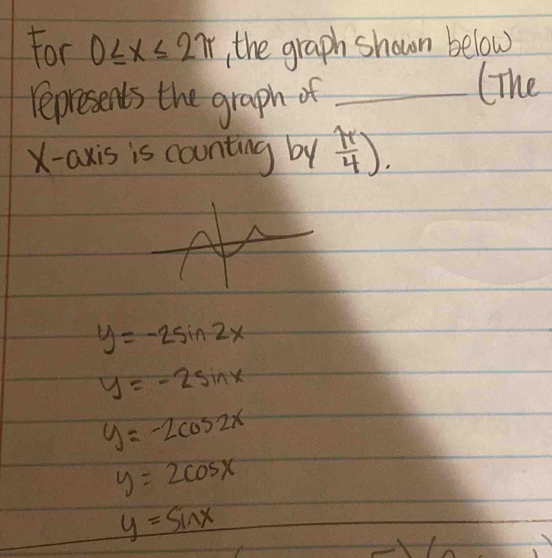 For 0≤x≤2π, the graph shown below
represents the graph of ________ (The
x-axis is counting by π/4).
y = -2sin2x
y = -2sinx
y = -2cos2x
y = 2cosx
y = sinx